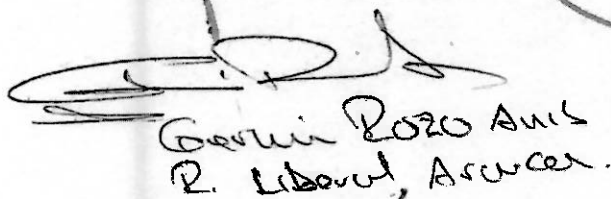 Germin Rozo Anis
R. Liberal, Arauca.